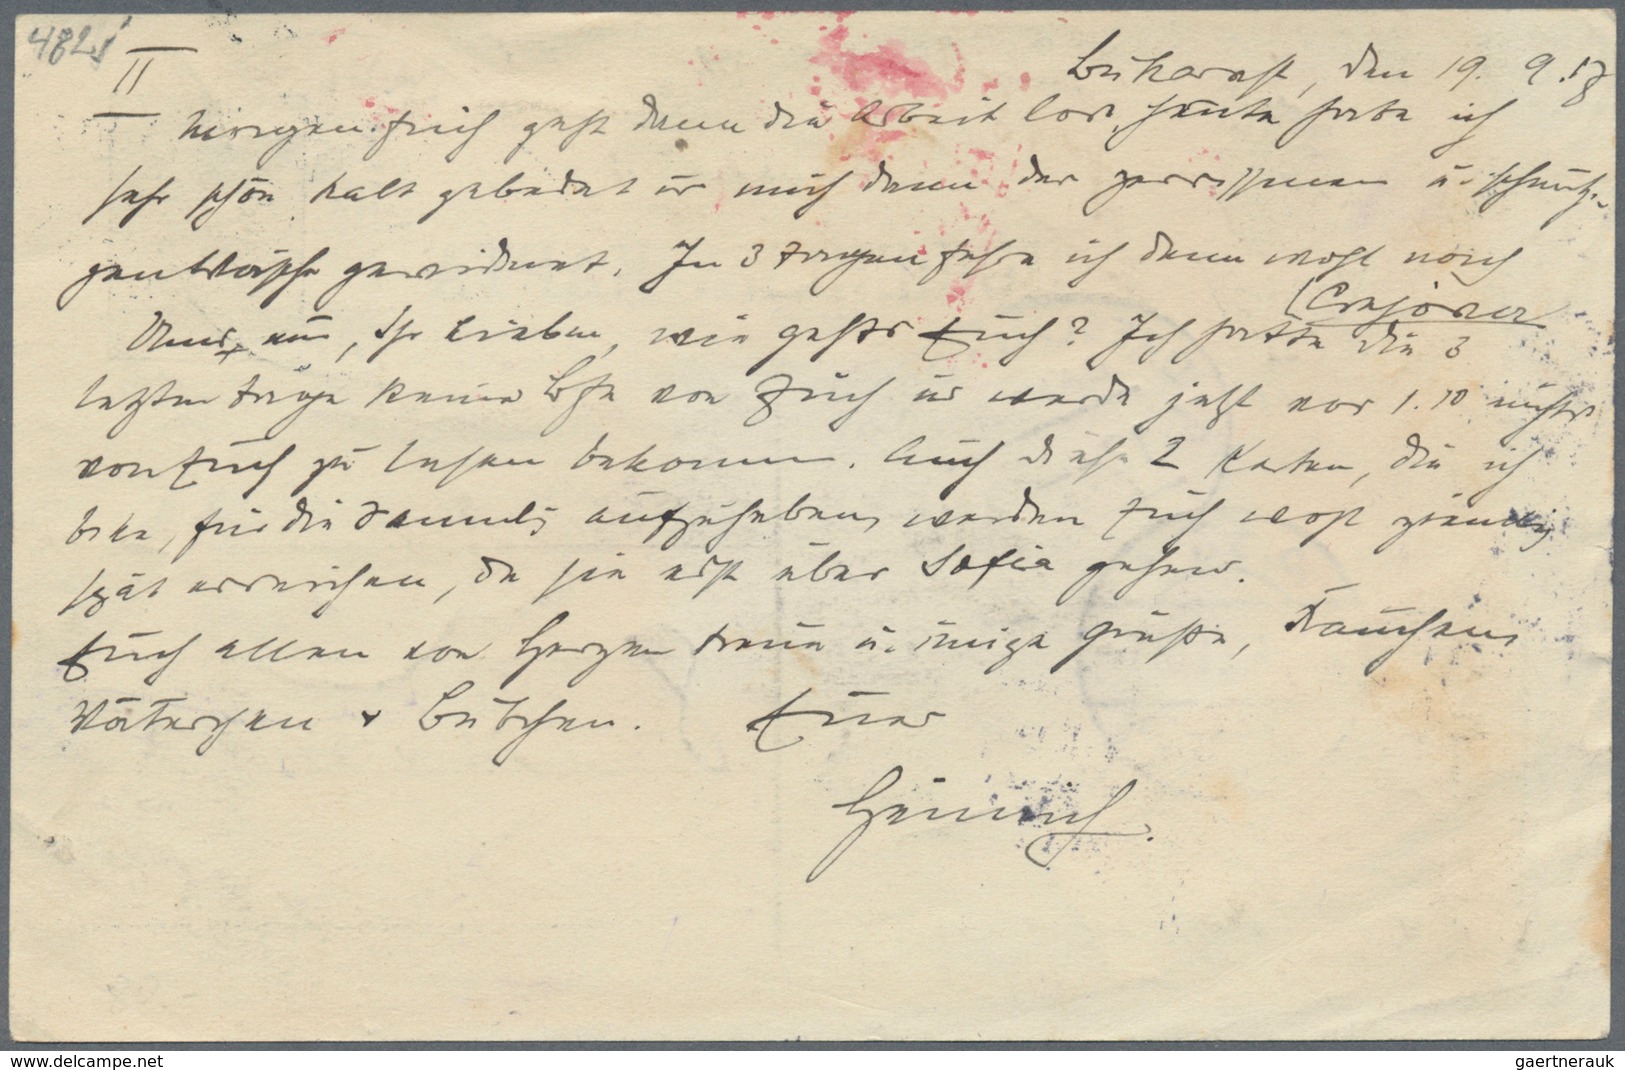 482
II
Bukarest, den 19. 9. 18
Morgen früh geht dann die Arbeit los, heute habe ich
sehr schön kalt gebadet u. mich dann der zerrissenen u. schmutzi-
gen Wäsche gewidmet. In 3 Tagen fahre ich dann wohl nach
Crajova
Und nun, Ihr Lieben, wie gehts Euch? Ich hatte die 3
letzten Tage keine Bfe von Euch u. werde jetzt vor 1.10 nichts
von Euch zu lesen bekommen. Auch diese 2 Karten, die ich
bitte, für die Samml. aufzuheben, werden Euch wohl ziemlich
spät erreichen, da sie erst über Sofia gehen.
Euch allen von Herzen treue u. innige Grüße,
Väterchen + Bübchen. Euer
Heinrich.
www.delcampe.net
gaertnerauk